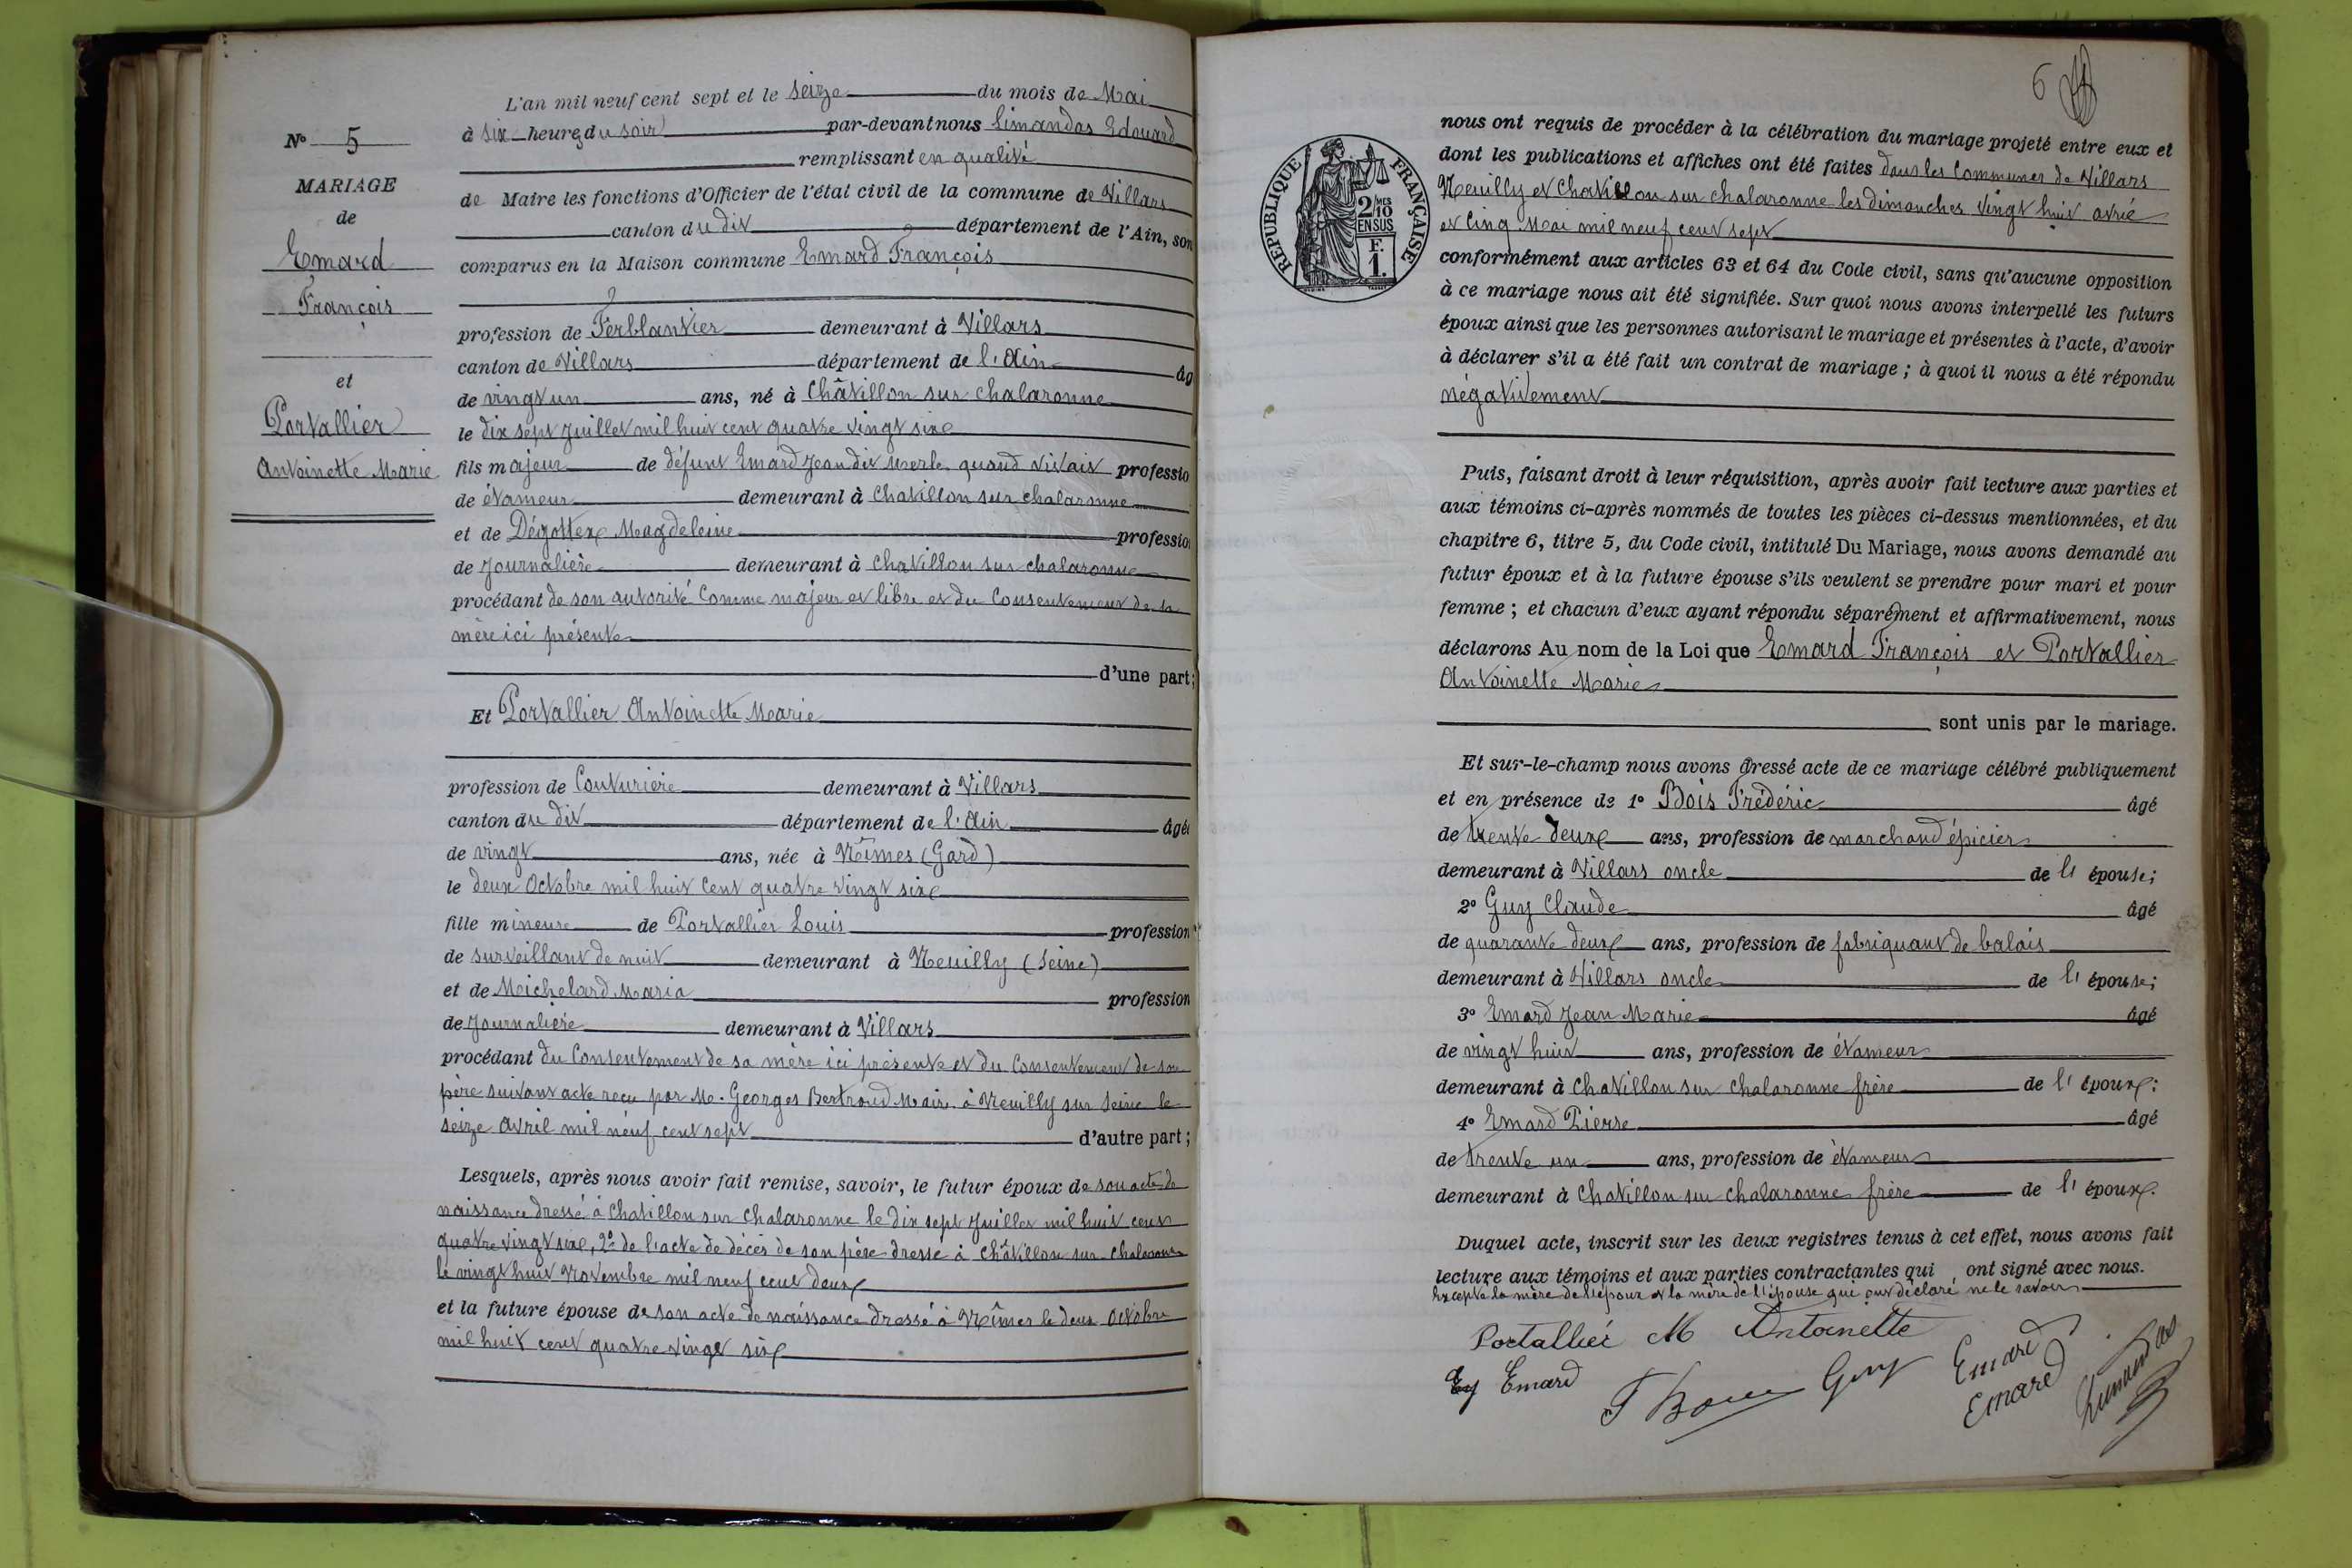 L'an mil neuf cent sept et le seize du mois de Mai
à six heures du soir par-devant nous Limandas Edouard
remplissant en qualité
de Maire les fonctions d'Officier de l'état civil de la commune de Villars
canton du dit département de l'Ain, son
comparus en la Maison commune Emard François
profession de Ferblantier demeurant à Villars
canton de Villars département de l'Ain âg
de vingt un ans, né à Châtillon sur Chalaronne
le dix sept Juillet mil huit cent quatre vingt six
fils majeur de défunt Emard Jean dit Merle, quand vivait professio
de étameur demeurant à Chatillon sur chalaronne
et de Magdeleine profession
de Journalière demeurant à Chatillon sur chalaronne
procédant de son autorité Comme majeur et libre et du Consentement de sa
mère ici présente
d'une part;
Et Portallier Antoinette Marie
profession de Couturière demeurant à Villars
canton du dit département de l'Ain âgée
de vingt ans, née à Nîmes (Gard)
le deux Octobre mil huit cent quatre vingt six
fille mineure de Portallier Louis profession
de surveillant de nuit demeurant à Neuilly (Seine)
et de Michelard Maria profession
de Journalière demeurant à Villars
procédant du Consentement de sa mère ici présente et du Consentement de son
père suivant acte reçu par M. Georges Bertrand Maire à Neuilly sur Seine le
seize Avril mil neuf cent sept d'autre part;
Lesquels, après nous avoir fait remise, savoir, le futur époux de son acte de
naissance dressé à Chatillon sur Chalaronne le dix sept Juillet mil huit cent
quatre vingt six, 2º de l'acte de décès de son père dressé à Châtillon sur Chalaronne
le vingt huit Novembre mil neuf cent deux
et la future épouse de son acte de naissance dressé à Nîmes le deux Octobre
mil huit cent quatre vingt six
Nº 5
MARIAGE
de
Emard
François
et
Portallier
Antoinette Marie
6
RÉPUBLIQUE FRANÇAISE
2/10 MES
EN SUS
F.
1.
nous ont requis de procéder à la célébration du mariage projeté entre eux et
dont les publications et affiches ont été faites dans les Communes de Villars
Neuilly et Chatillon sur chalaronne les dimanches vingt huit avril
et Cinq Mai mil neuf cent sept
conformément aux articles 63 et 64 du Code civil, sans qu'aucune opposition
à ce mariage nous ait été signifiée. Sur quoi nous avons interpellé les futurs
époux ainsi que les personnes autorisant le mariage et présentes à l'acte, d'avoir
à déclarer s'il a été fait un contrat de mariage; à quoi il nous a été répondu
négativement
Puis, faisant droit à leur réquisition, après avoir fait lecture aux parties et
aux témoins ci-après nommés de toutes les pièces ci-dessus mentionnées, et du
chapitre 6, titre 5, du Code civil, intitulé Du Mariage, nous avons demandé au
futur époux et à la future épouse s'ils veulent se prendre pour mari et pour
femme; et chacun d'eux ayant répondu séparément et affirmativement, nous
déclarons Au nom de la Loi que Emard François et Portallier
Antoinette Marie
sont unis par le mariage.
Et sur-le-champ nous avons dressé acte de ce mariage célébré publiquement
et en présence de 1º Bois Frédéric âgé
de trente deux ans, profession de marchand épicier
demeurant à Villars oncle de l' épouse;
2º Guy Claude âgé
de quarante deux ans, profession de fabriquant de balais
demeurant à Villars oncle de l' épouse;
3º Emard Jean Marie âgé
de vingt huit ans, profession de étameur
demeurant à Chatillon sur chalaronne frère de l' époux:
4º Emard Pierre âgé
de trente un ans, profession de étameur
demeurant à Chatillon sur chalaronne frère de l' époux.
Duquel acte, inscrit sur les deux registres tenus à cet effet, nous avons fait
lecture aux témoins et aux parties contractantes qui ont signé avec nous.
Excepté la mère de l'époux et la mère de l'épouse qui ont déclaré ne le savoir
Portallier M Antoinette
Emard
Guy
Emard
Emard
Limandas